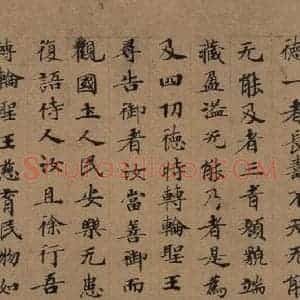 德一者長壽不夭
无能及者三者顏貌端
藏盈溢无能及者是為
及四功德時轉輪聖王
尋告御者汝當善御而
觀國土人民安樂无患
復語侍人汝且徐行吾
轉輪聖王慈育民物如